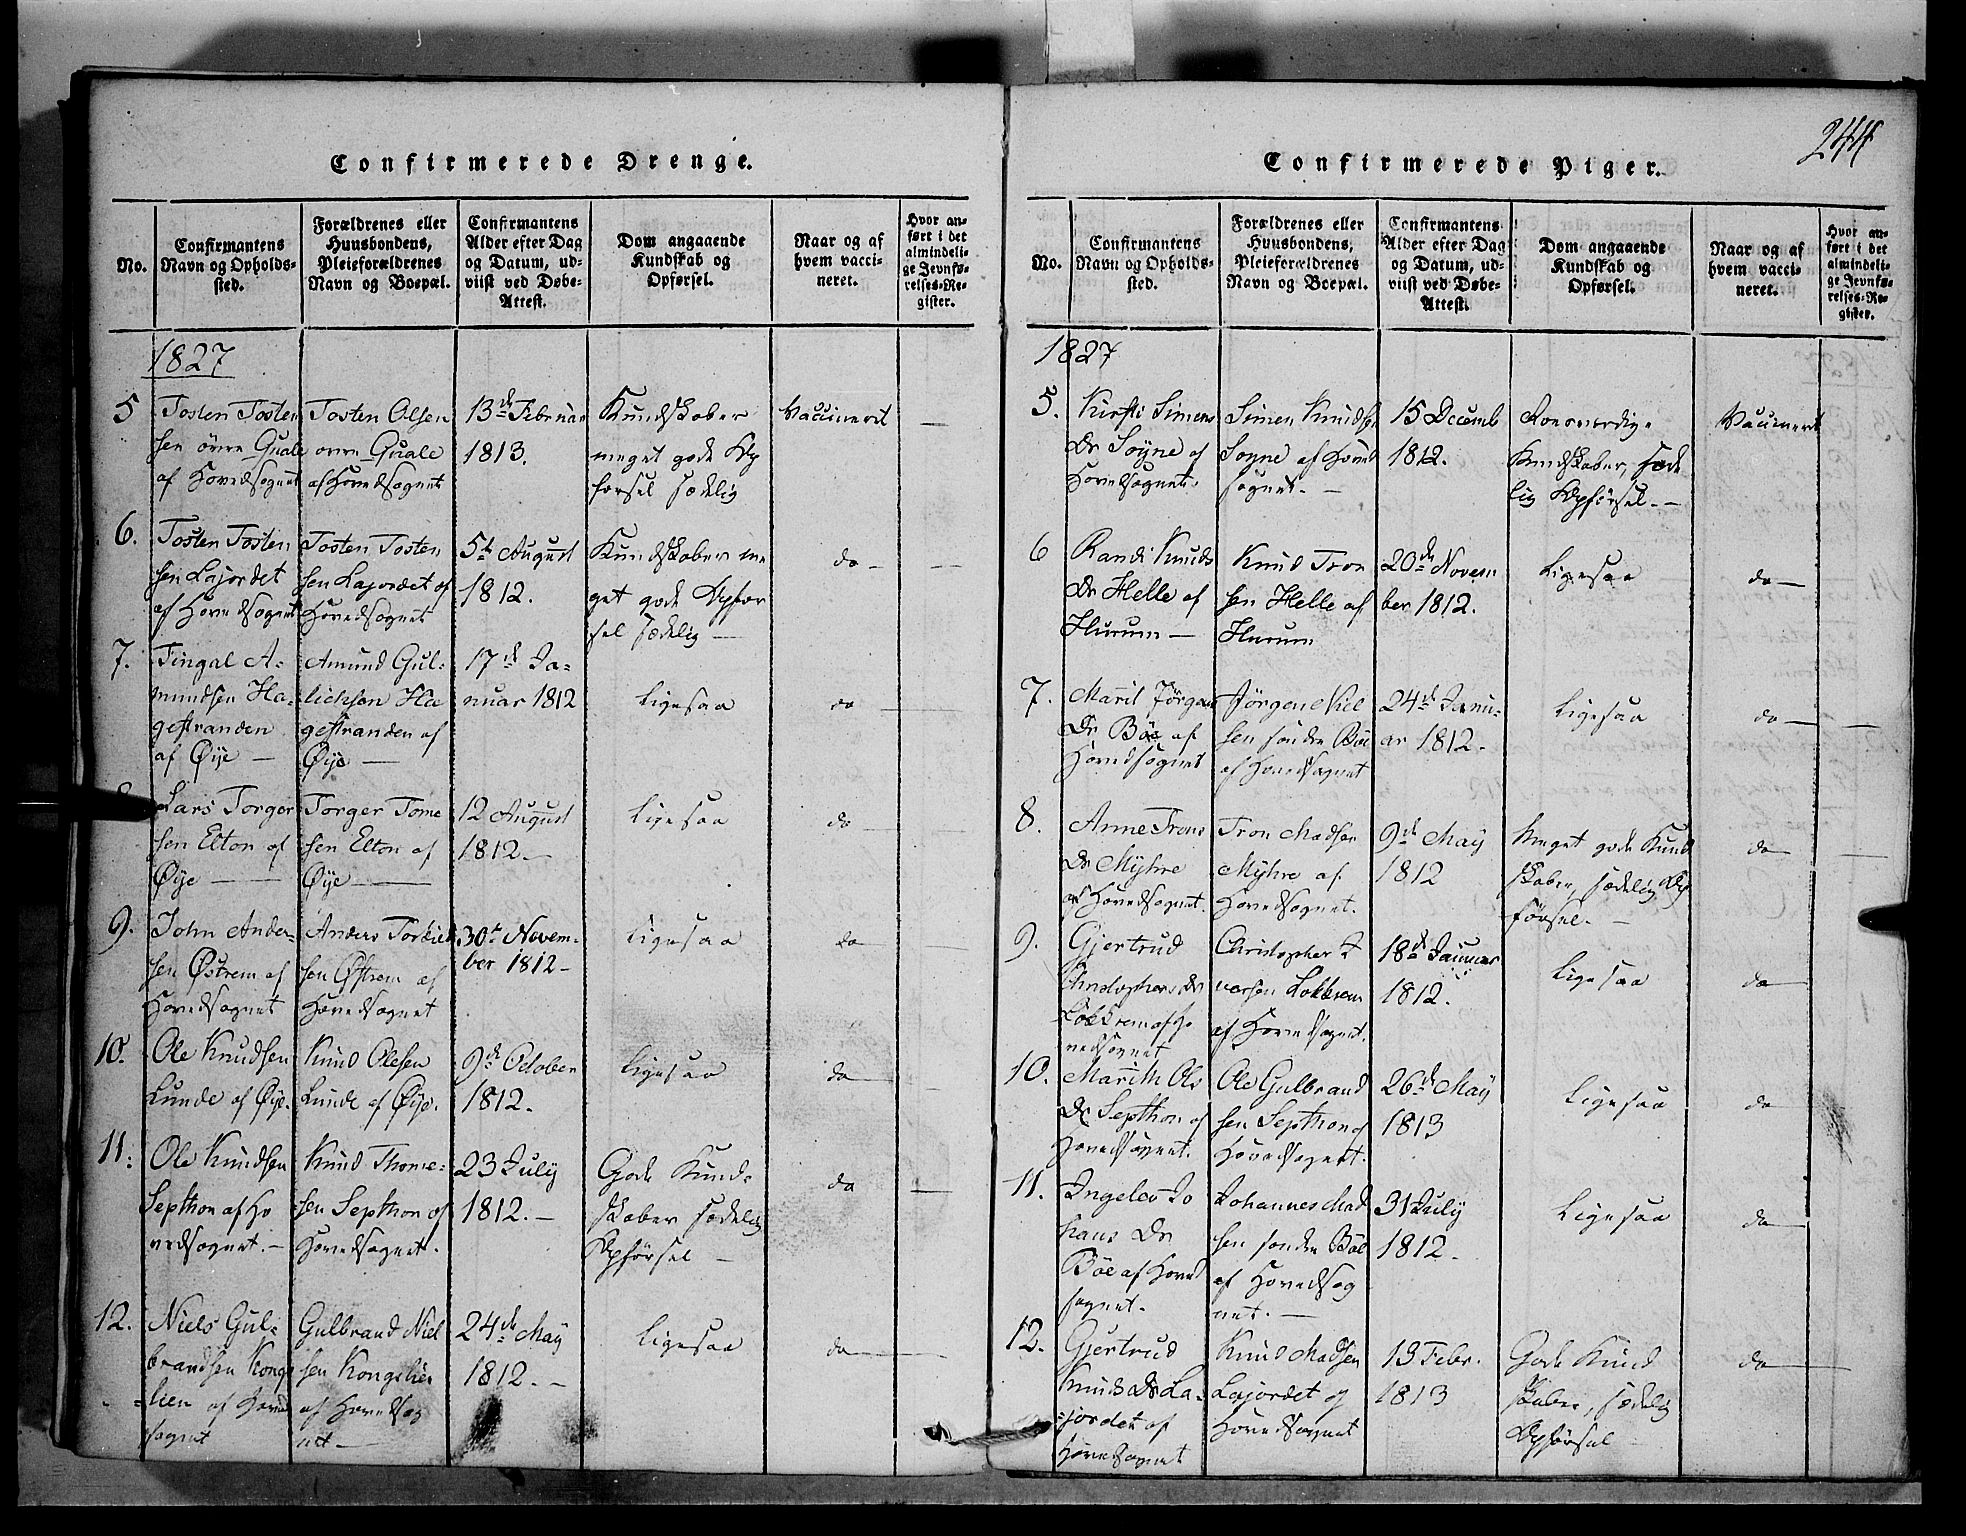 244
Confirmerede Drenge.
No.
Confirmantens
Navn og Opholds-
sted.
Forældrenes eller
Huusbondens,
Pleieforældrenes
Navn og Boepæl.
Confirmantens
Alder efter Dag
og Datum, ud-
viist ved Døbe-
Attest.
Dom angaaende
Kundskab og
Opførsel.
Naar og af
hvem vacci-
neret.
Hvor an-
ført i det
almindeli-
ge Jevnfø-
relses-Re-
gister.
1827
5
Tosten Tosten
sen övre Quale
af Hovedsognet
Tosten Olsen
övre Quale
af Hovedsognet
13de Februar
1813.
Kundskaber
meget gode Op
førsel sædelig
Vaccineret
6.
Tosten Tosten
sen Lajordet
af Hovedsognet
Tosten Tosten
sen Lajordet af
Hovedsognet
5te August
1812.
Kundskaber me
get gode Opfør
sel sædelig —
do —
7.
Fingal A-
mundsen Ha-
gestranden
af Øÿe —
Amund Gul-
lichsen Ha
gestranden af
Øÿe —
17de Ja-
nuar 1812
Ligesaa
do
Lars Torger
sen Elton af
Øÿe —
Torger Tome
sen Elton af
Øÿe —
12 August
1812. —
Ligesaa
do
9.
John Ander-
sen Østrem af
Hovedsognet
Anders
sen Østrem af
Hovedsognet
30te Novem-
ber 1812 —
Ligesaa
do
10.
Ole Knudsen
Lunde af Øÿe.
Knud Olesen
Lunde af Øÿe.
9de October
1812.
Ligesaa
do
11.
Ole Knudsen
Septhon af Ho
vedsognet. —
Knud Thome-
sen Septhon af
Hovedsognet.
23 Julÿ
1812. —
Gode Kund-
skaber sædelig
Opførsel —
do
12.
Niels Gul-
brandsen Kongs
lien af Hoved
sognet
Gulbrand Niel
sen Kongslien
af Hovedsog
net —
24de Maÿ
1812. —
Ligesaa
do
Confirmerede Piger.
No.
Confirmantens
Navn og Opholds-
sted.
Forældrenes eller
Huusbondens,
Pleieforældrenes
Navn og Boepæl.
Confirmantens
Alder efter Dag
og Datum, ud-
viist ved Døbe-
Attest.
Dom angaaende
Kundskab og
Opførsel.
Naar og af
hvem vacci-
neret.
Hvor an-
ført i det
almindeli-
ge Jevnfø-
relses-Re-
gister.
1827
5.
Kirsti Simens
Dr Söyne af
Hovedsognet.
Simen Knudsen
Söyne af Hoved
sognet. —
15 Decemb
1812.
Roesværdige
Kundskaber, sæde
lig Opførsel. —
Vaccineret
6
Randi Knuds
Dr Helle af
Hurum —
Knud Tron
sen Helle af
Hurum
20de Novem
ber 1812.
Ligesaa
do —
7.
Marit Jørgens
Dr Böe af
Hovedsognet
Jörgen Niel
sen söndre Böe
af Hovedsognet
24de Janu-
ar 1812.
Ligesaa
do —
8.
Anne Trons
Dr Mÿhre
af Hovedsognet.
Tron Madsen
Mÿhre af
Hovedsognet.
9de Maÿ
1812
Meget gode Kund
skaber, sædelig Op
førsel. —
do
9.
Gjertrud
Christophers Dr
Løkkrem af Ho
vedsognet
Christopher I
versen Lokkrem
af Hovedsognet.
18de Januar
1812.
Ligesaa
do
10.
Marith Ols
Dr Septhon af
Hovedsognet.
Ole Gulbrand
sen Septhon af
Hovedsognet.
26de Maÿ
1813
Ligesaa
do
11.
Ingelev Jo
hans Dr
Böe af Hoved
sognet.
Johannes Mad
sen söndre Böe
af Hovedsog
net. —
31 Julÿ
1812.
Ligesaa
do
12.
Gjertrud
Knuds Dr La-
jordet af
Hovedsognet
Knud Madsen
Lajordet af
Hovedsognet
13 Febr.
1813
Gode Kund
skaber, sædelig
Opførsel
do